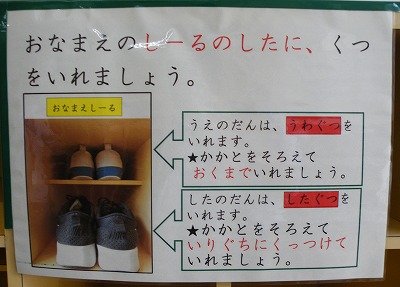 おなまえのしーるのしたに、くつ
をいれましょう。
おなまえしーる
うえのだんは、うわぐつを
いれます。
★かかとをそろえて
おくまでいれましょう。
したのだんは、したぐつを
いれます。
★かかとをそろえて
いりぐちにくっつけて
いれましょう。